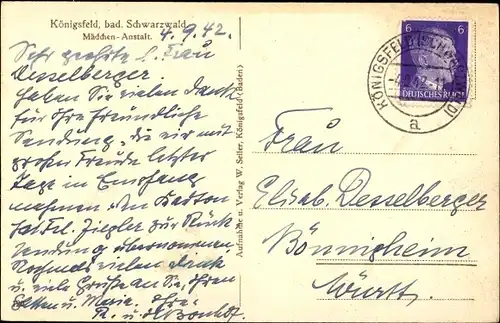 Königsfeld, bad. Schwarzwald
Mädchen-Anstalt.
4.9.42.
Sehr geehrte l. Frau
Desselberger.
Haben Sie vielen Dank
für Ihre freundliche
Sendung, die wir mit
großer Freude letzter
Tage in Empfang
nahmen. Den Karton
hat Frl. Ziegler zur Rück-
sendung übernommen.
Nochmals vielen Dank
u. viele Grüße an Sie, Ihren
u. Marie. Ihre
R. u.
Aufnahme u. Verlag W. Seiler, Königsfeld (Baden)
6 6
DEUTSCHES REICH
KÖNIGSFELD (SCHWARZWALD)
a
Frau
Elisab. Desselberger
Bönnigheim
Württ.